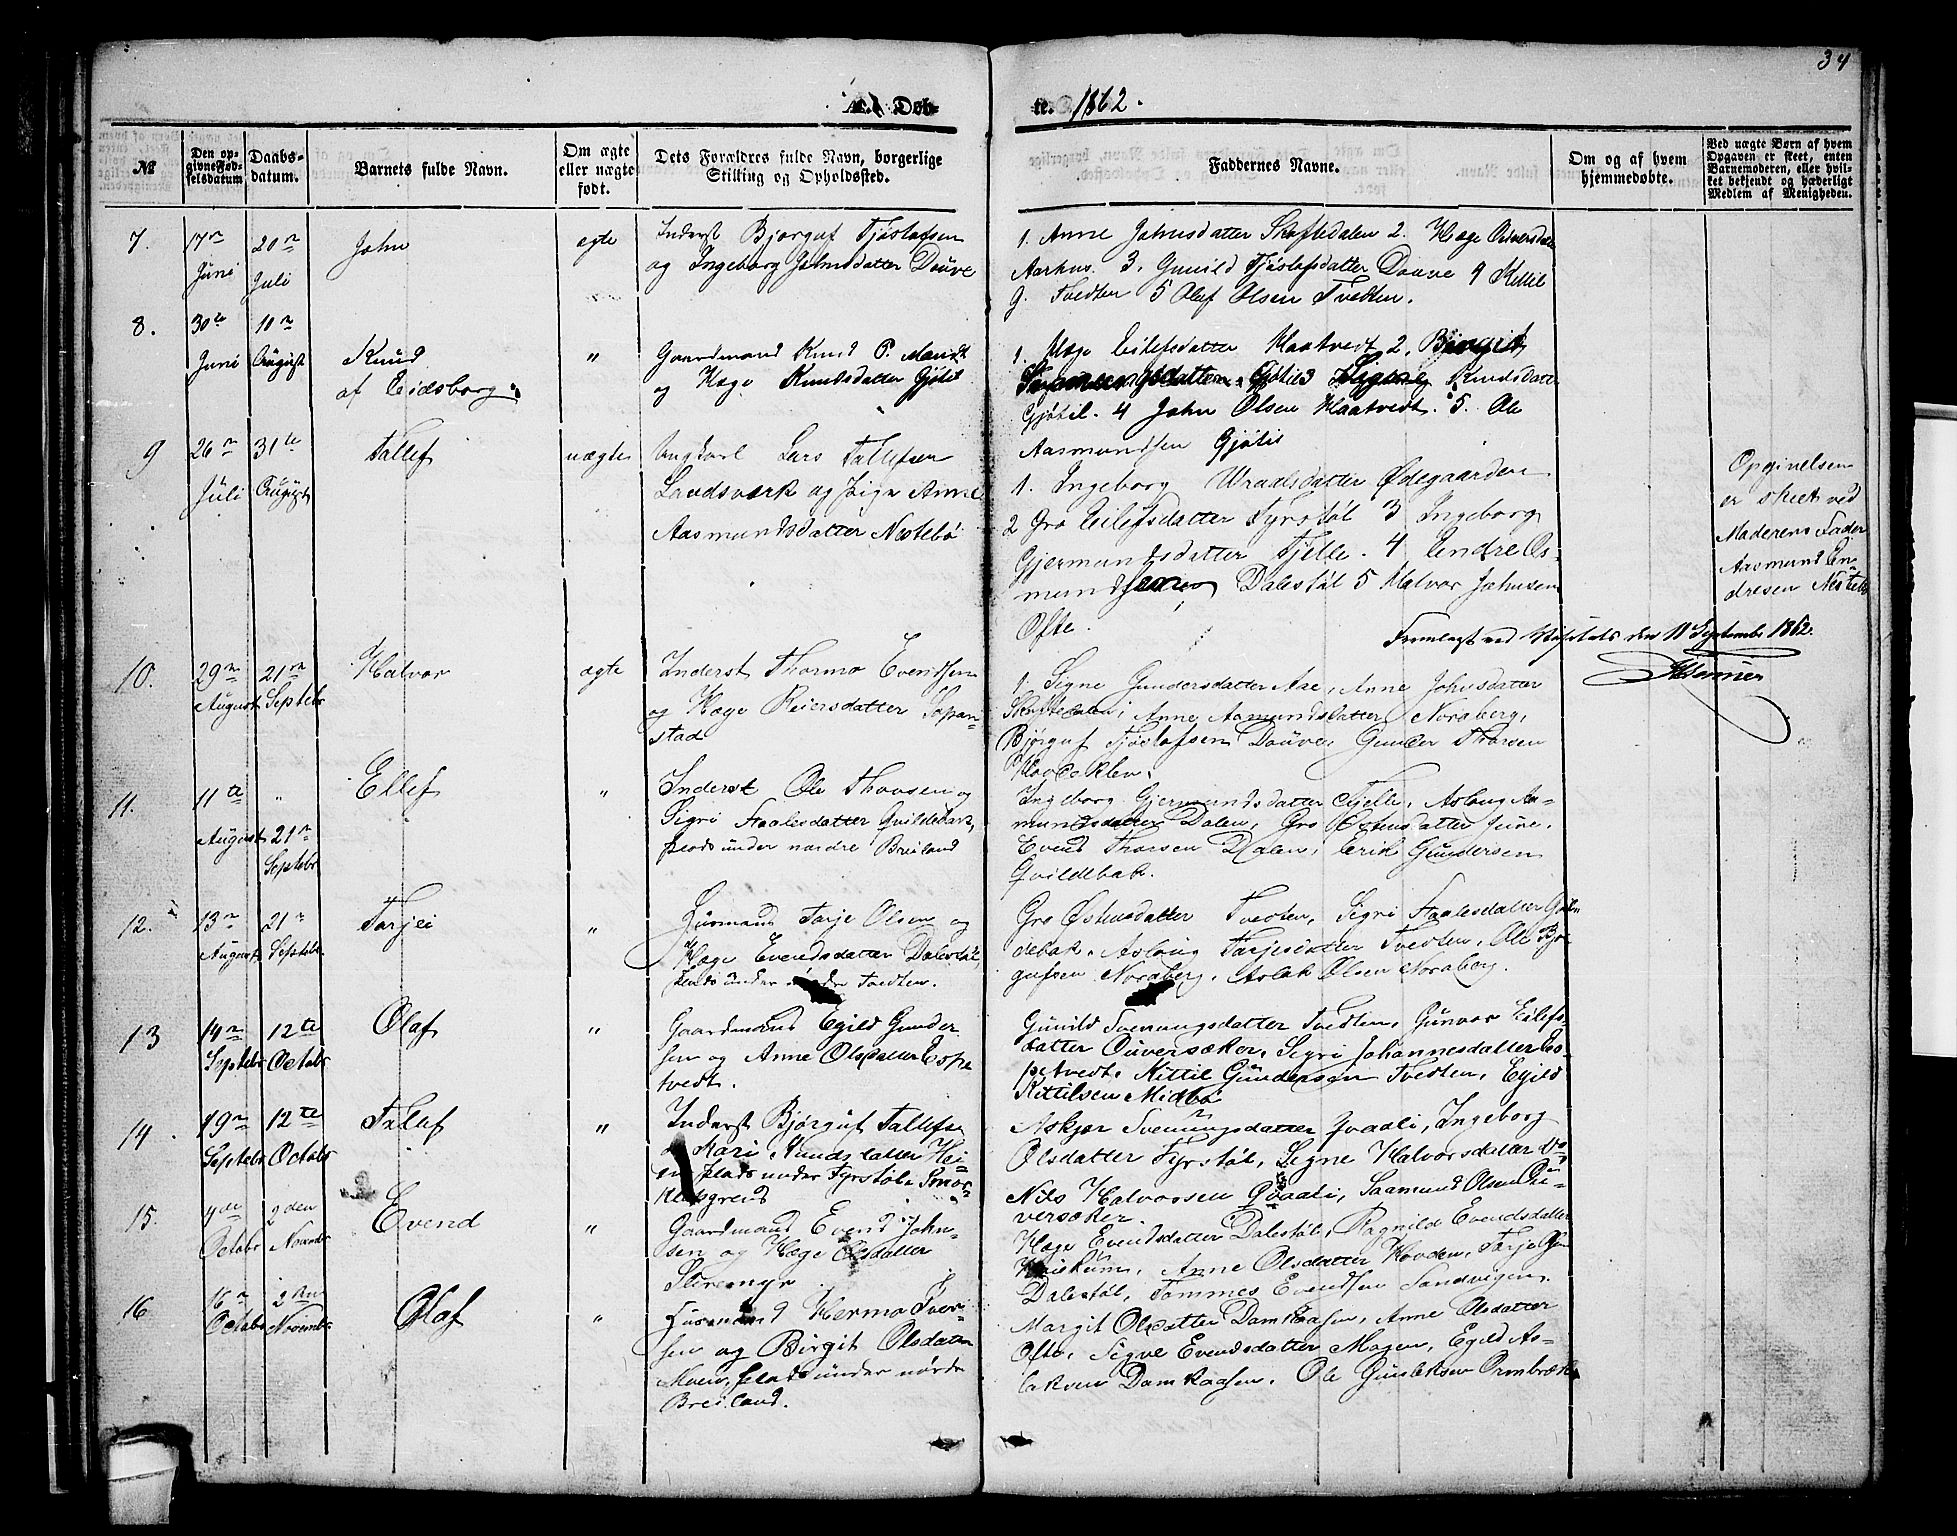 34
1. Døb-
te. 1862.
№
Den op-
givne Fød-
selsdatum
Daabs-
datum.
Barnets fulde Navn.
Om ægte
eller uægte
født.
Dets Forældres fulde Navn, borgerlige
Stilling og Opholdssted.
Faddernes Navne.
Om og af hvem
hjemmedøbte.
Ved uægte Børn af hvem
Opgaven er skeet, enten
Barnemoderen, eller hvil-
ket bekjendt og hæderligt
Medlem af Menigheden.
7.
17n
Juni
20n
Juli
John
ægte
Inderst Bjørguf Tjøstofsen
og Ingeborg Johnsdatter Douve
1. Anne Johnsdatter Skaftedalen 2. Hæge
Aarhus. 3. Gunild Tjøstofsdatter Douve 4 Kittil
G. Tvedten 5 Olef Olsen Tvedten.
8.
30te
Juni
10n
August
Knud
af Eidsborg.
"
Gaardmand Knud P.
og Hæge Knudsdatter Gjøtil
1. Hæge Eilefsdatter Haatvedt 2. Birgit
Gjøtil 3 Signe Knudsdatter
Gjøtil. 4 John Olsen Haatvedt. 5. Ole
Aasmundsen Gjøtil
9
26n
Juli
31te
August
Tallef
uægte
Ungkarl Lars Tallefsen
Landsverk og Pige Anne
Aasmundsdatter Nestebø
1. Ingeborg Wraalsdatter Ødegaarden
2 Gro Eilefsdatter Fyrstøl 3 Ingeborg
Gjermundsdatter Tjelle. 4 Endre Os-
mundsen Dalestøl 5 Halvor Johnsen
Ofte.
Opgivelsen
er skeet ved
Moderens Fader
Aasmund En-
dresen Nesteb
Fremlagt ved Visitats den 11 September 1862.
10.
29n
August
21n
Septebr
Halvor
ægte
Inderst Thormo Evendsen
og Hæge Reiersdatter
stad
1. Signe Gundersdatter Aae, Anne Johnsdatter
Skaftedalen, Anne Asmundsdatter Noraberg,
Bjørguf Tjøstofsen Douve, Gunder Thorsen
11.
11te
August
"
21n
Septebr
Ellef
"
Inderst Ole Thovsen og
Sigri Staalesdatter Qvildebak,
plads under nordre Breiland
Ingeborg Gjermundsdatter Tjelle, Aslaug As-
mundsdatter Dalen, Gro Østensdatter
Evend Thorsen Dalen, Erik Gundersen
Qvildebak.
12.
13n
August
21n
Septebr
Tarjei
"
Huusmand Tarje Olsen og
Hæge Evendsdatter Dalestøl,
plads under Tvedten.
Gro Østensdatter Tvedten, Sigri Staalesdatter Qvil-
debak, Aslaug Tarjesdatter Tvedten, Ole Bjør-
gufsen Noraberg, Aslak Olsen Noraberg.
13
14n
Septebr
12te
Octobr
Olaf
"
Gaardmand Egild Gunder
sen og Anne Olsdatter Espe
tvedt.
Gunild Svenungsdatter Tvedten, Gunvor Eilefs-
datter Ouversaker, Sigri Johannesdatter Es-
petvedt, Kittil Gundersen Tvedten, Egild
Kittilsen Midbø
14
19n
Septebr
12te
Octobr
Talaf
"
Inderst Bjørguf Tallefsen
Kari Knudsdatter Hei
plads under Fyrstøl
Askjer Svenungsdatter Qvaali, Ingeborg
Olsdatter Fyrstøl, Signe Halvorsdatter
Nils Halvorsen Qvaali, Saamund Olsen Ou-
versaker.
15.
4de
Octobr
2den
Novebr
Evend
"
Gaardmand Evend John-
sen og Hæge Olsdatter
Hæge Evendsdatter Dalestøl, Ragnild Evendsdatter
Anne Olsdatter Hovden, Tarje
Dalestøl, Tommes Evendsen Sandvigen.
16
16n
Octobr
2den
Novembr
Olaf
"
Huusmand Hermo Iver-
sen og Birgit Olsdatter
Moen, plads under nordre
Breiland.
Margit Olsdatter Damkaasen, Anne Olsdatter
Ofte, Signe Evendsdatter Mogen, Egild As-
laksen Damkaasen. Ole Gunleksen